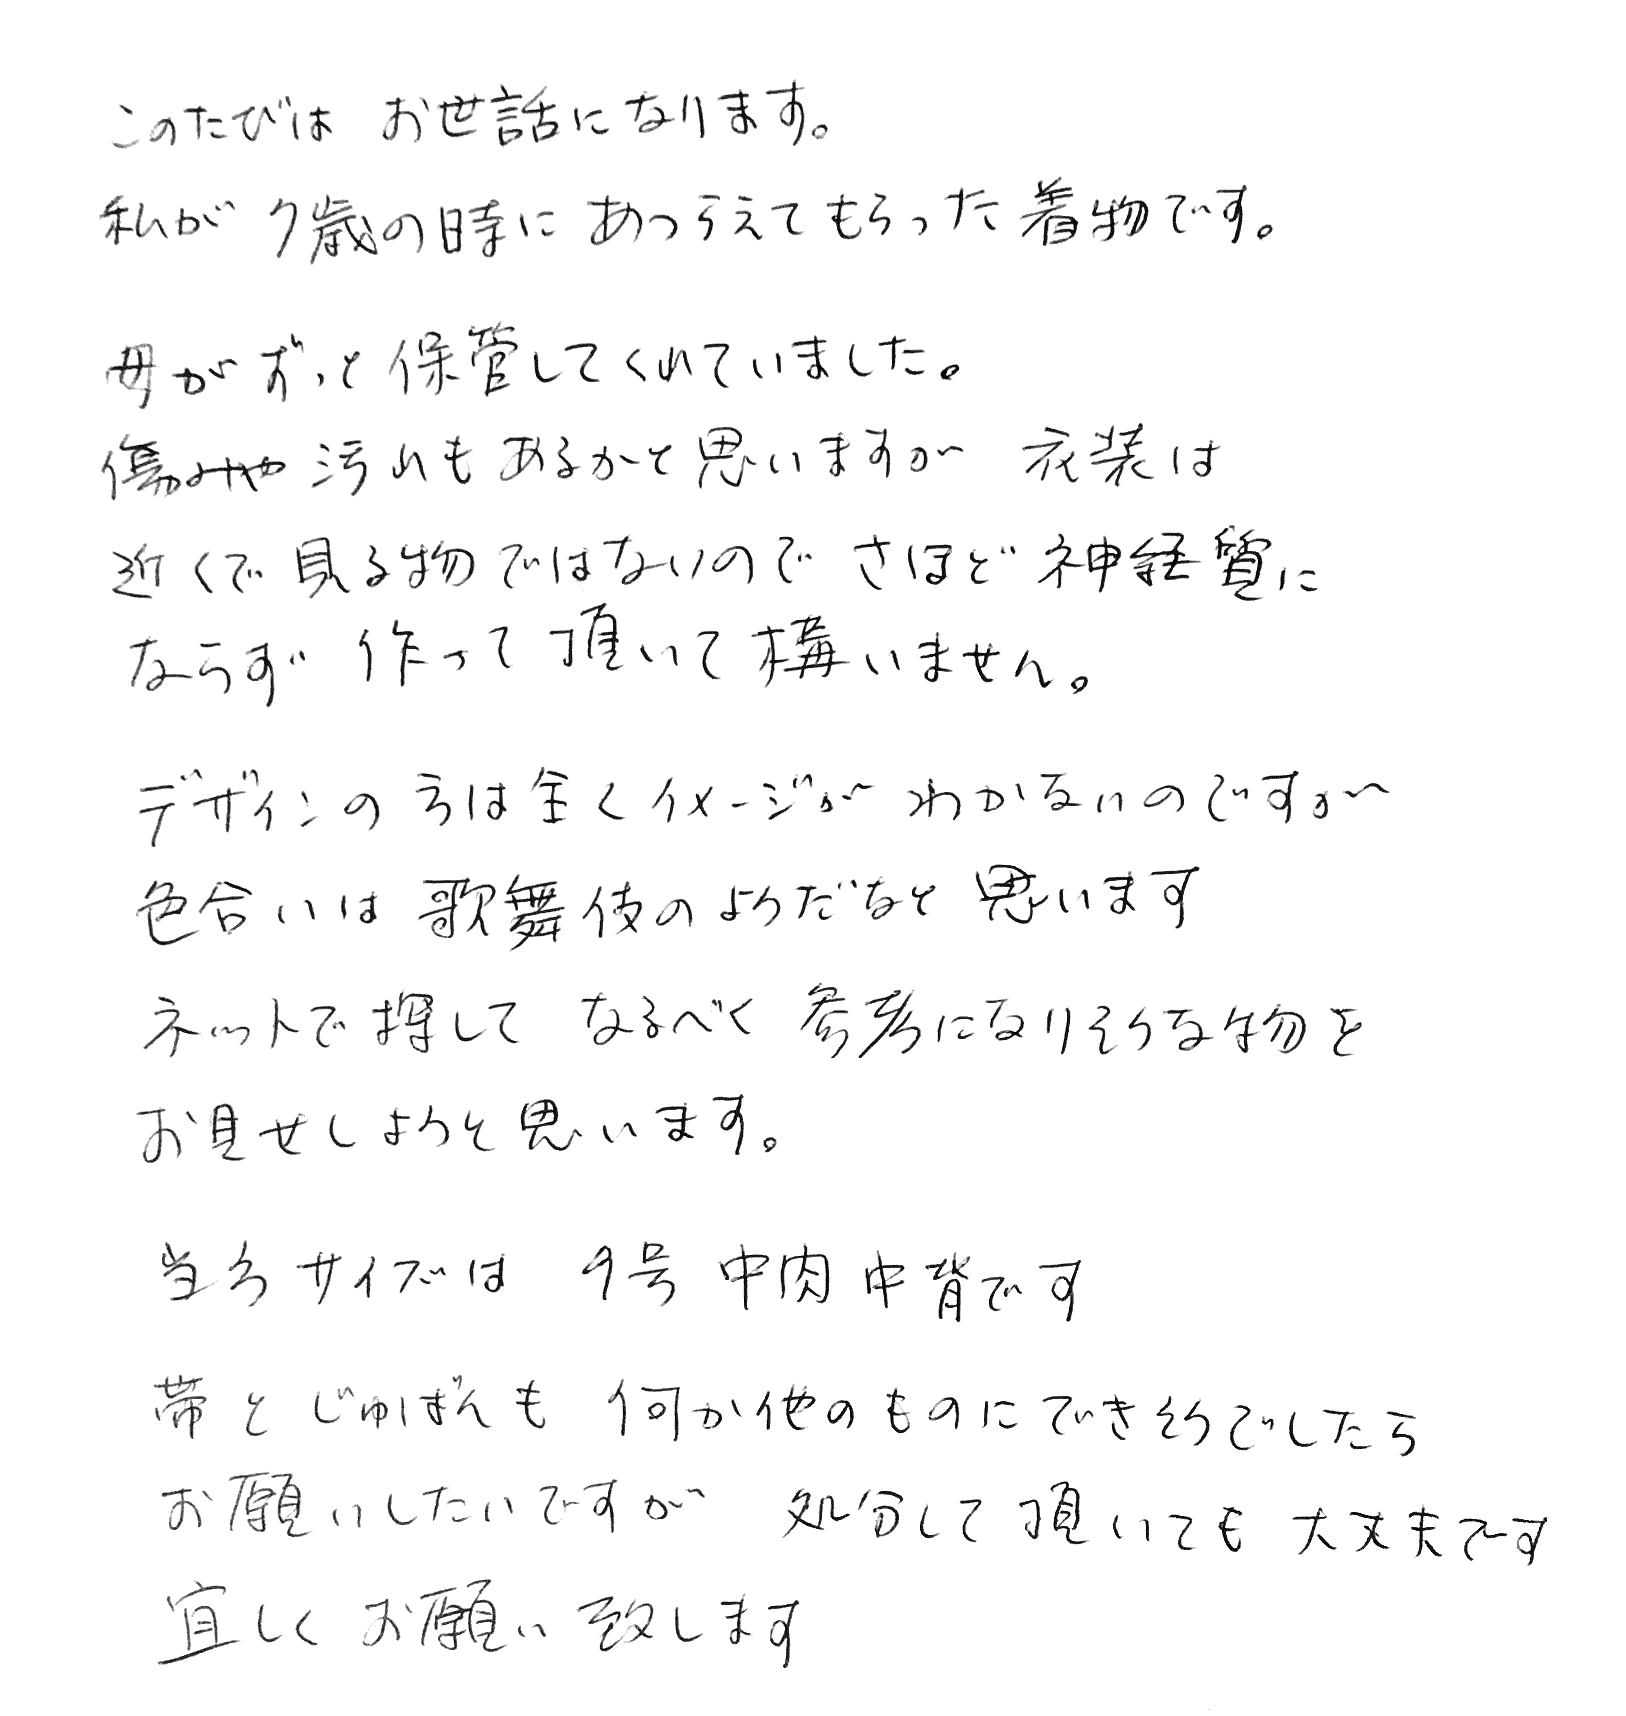 このたびは お世話になります。
私が 7歳の時に あつらえてもらった 着物です。
母が ずっと 保管してくれていました。
傷みや 汚れも あるかと 思いますが 衣装は
近くで 見る物ではないので さほど 神経質に
ならず 作って 頂いて 構いません。
デザインの方は全くイメージが わかないのですが
色合いは 歌舞伎のようだなと 思います
ネットで探して なるべく 参考になりそうな物を
お見せしようと思います。
当方 サイズは 9号 中肉 中背です
帯と じゅばんも 何か他のものにできそうでしたら
お願いしたいですが 処分して 頂いても 大丈夫です
宜しく お願い 致します